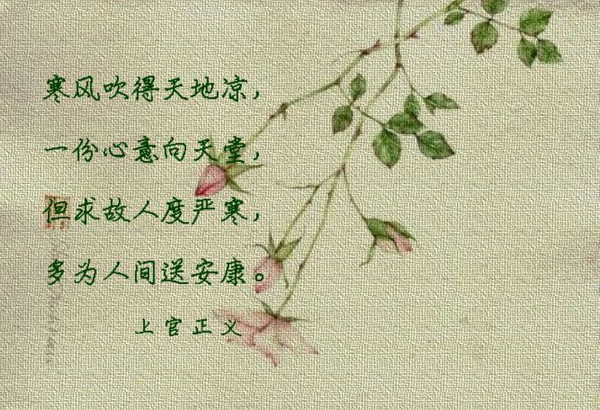 寒风吹得天地凉，
一份心意向天堂，
但求故人度严寒，
多为人间送安康。
上官正义